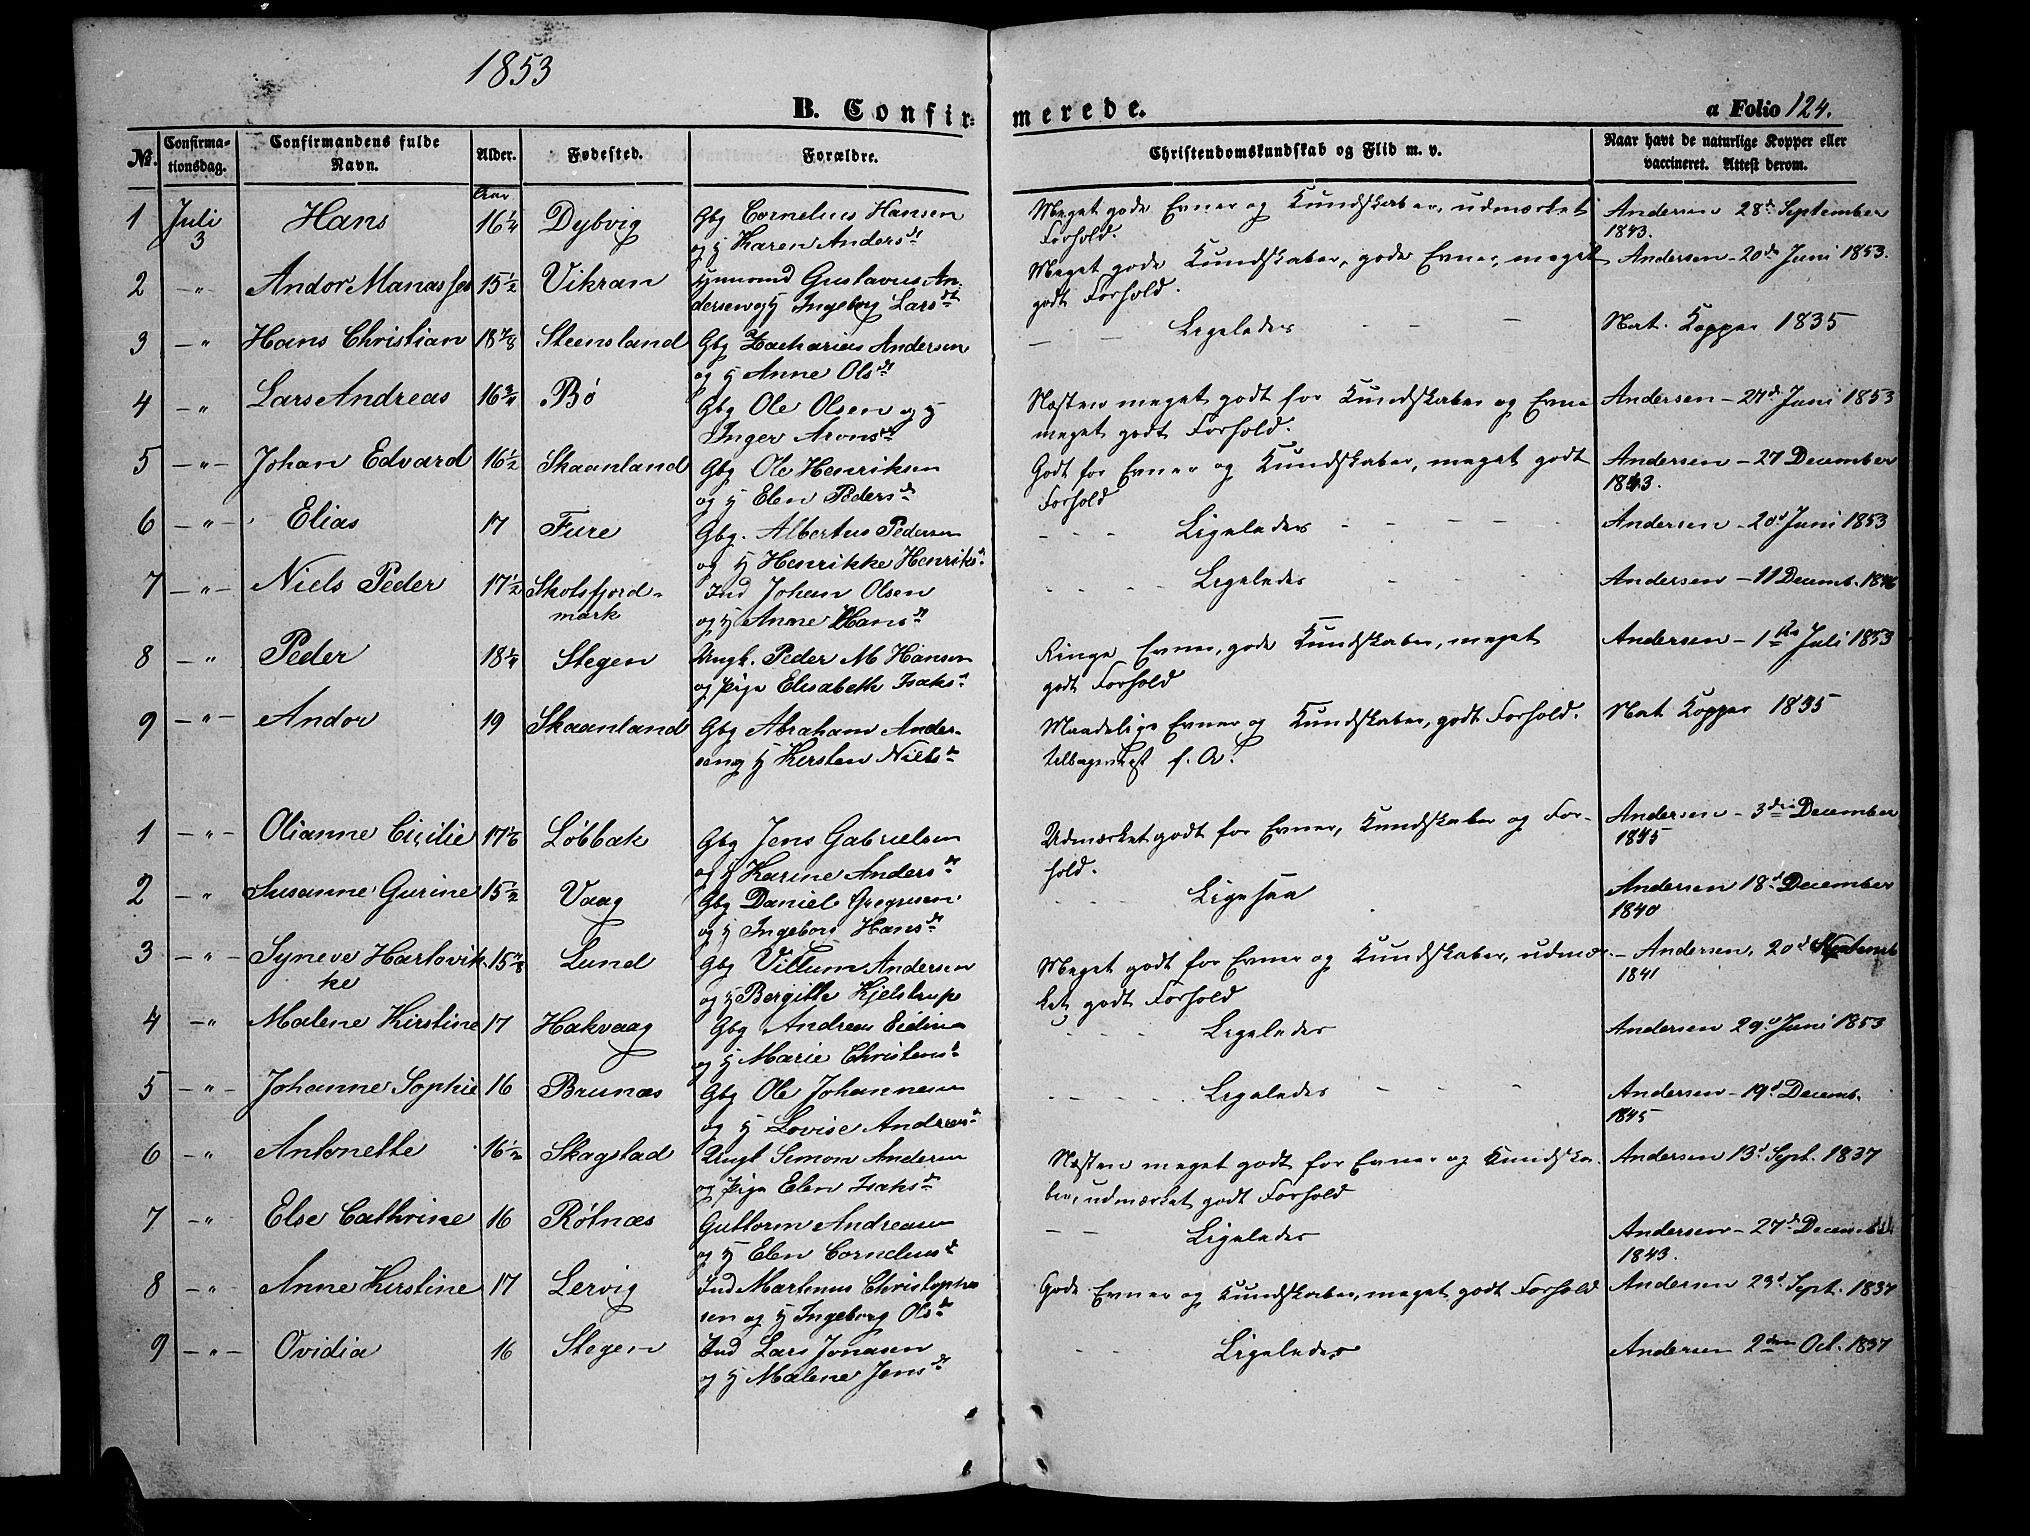 1853
B. Confirmerede.
a Folio 124.
No. Confirmationsdag. Confirmandens fulde Navn. Alder. Fødested. Forældre. Christendomskundskab og Flid m. v. Naar havt de naturlige Kopper eller vaccineret. Attest derom.
Aar
1 Juli 3 Hans 16 1/4 Dybvig Gbg Cornelius Hansen Meget gode Evner og Kundskaber, udmærket Andersen 28d September
og H Karen Andersdt Forhold. 1843.
2 - " - Andor Manasses 15 1/2 Vikran Huusmd Gustavus An- Meget gode Kundskaber, gode Evner, meget Andersen - 20de Juni 1853.
dersen og H Ingeborg Larsdt godt Forhold.
3 - " Hans Christian 18 7/8 Steensland Gbg Zacharias Andersen - - Ligeledes - - - Nat. Kopper 1835
og H Anne Olsdt
4 - " Lars Andreas 16 3/4 Bø Gbg Ole Olsen og H Næsten meget godt for Kundskaber og Evne Andersen - 27d Juni 1853
Inger Aronsdt meget godt Forhold.
5 - " - Johan Edvard 16 1/2 Skaanland Gbg Ole Henriksen Godt for Evner og Kundskaber, meget godt Andersen - 27 December
og H Elen Pedersd Forhold 1843.
6 - " - Elias 17 Fure Gbg. Albertus Pedersen - - - Ligeledes - - - - Andersen - 20d Juni 1853
og H Henrikke Henriksd
7 - " - Niels Peder 17 1/2 Skotsfjord- Ind Johan Olsen - - - Ligeledes - - - Andersen - 11 Decemb. 1846
mark og H Anne Hansdt
8 - " Peder 18 1/4 Stegen Ungk. Peder M Hansen Ringe Evner, gode Kundskaber, meget Andersen - 1ste Juli 1853
og Pige Elisabeth Isaksd godt Forhold
9 - " - Andor 19 Skaanland Gbg Abraham Ander- Maadelige Evner og Kundskaber, godt Forhold. Nat Kopper 1835
sen og H Kirsten Nielsd tilbagevist f. A.
1 - " - Olianne Cicilie 17 1/6 Løbbak Gbg Jens Gabrielsen Udmærket godt for Evner, Kundskaber og For- Andersen - 3die December
og H Karine Andersdt hold. 1845
2 - " Susanne Gurine 15 1/2 Vaag Gbg Daniel Gregusen - - Ligesaa Andersen 18d December
og H Ingeborg Hansdt 1840
3 - " Syneve Hartvik- 15 7/8 Lund Gbg Villum Andersen Meget godt for Evner og Kundskaber, udmær- - Andersen, 20d Septemb
ke og H Bergitte Kjelstrup ket godt Forhold 1841
4 - " Malene Kirstine 17 Hakvaag Gbg Andreas - - - Ligeledes Andersen 29d Juni 1853
og H Marie Christensd
5 - " - Johanne Sophie 16 Brunæs Gbg Ole Johannesen - - - - Ligeledes - - - Andersen - 19d Decemb.
og H Lovise Andreasd 1845
6 - " Antonette 16 1/2 Skagstad Ungk Simon Andersen Næsten meget godt for Evner og Kundska- Andersen 13d Sept. 1837
og Pige Elen Isaksdt ber, udmærket godt Forhold
7 - " Else Cathrine 16 Røtnæs Guttorm Andreasen - - Ligeledes Andersen - 27d December
og H Elen Corneliusd 1843.
8 - " - Anne Kirstine 17 Lervig Ind Martinus Christopher- Gode Evner og Kundskaber, meget godt Forhold Andersen 23d Sept. 1837
sen og H Ingeborg Olsdt
9 - " - Ovidia 16 Stegen Ind Lars Jonasen - - - Ligeledes Andersen 2den Oct. 1837
og H Malene Jensdt